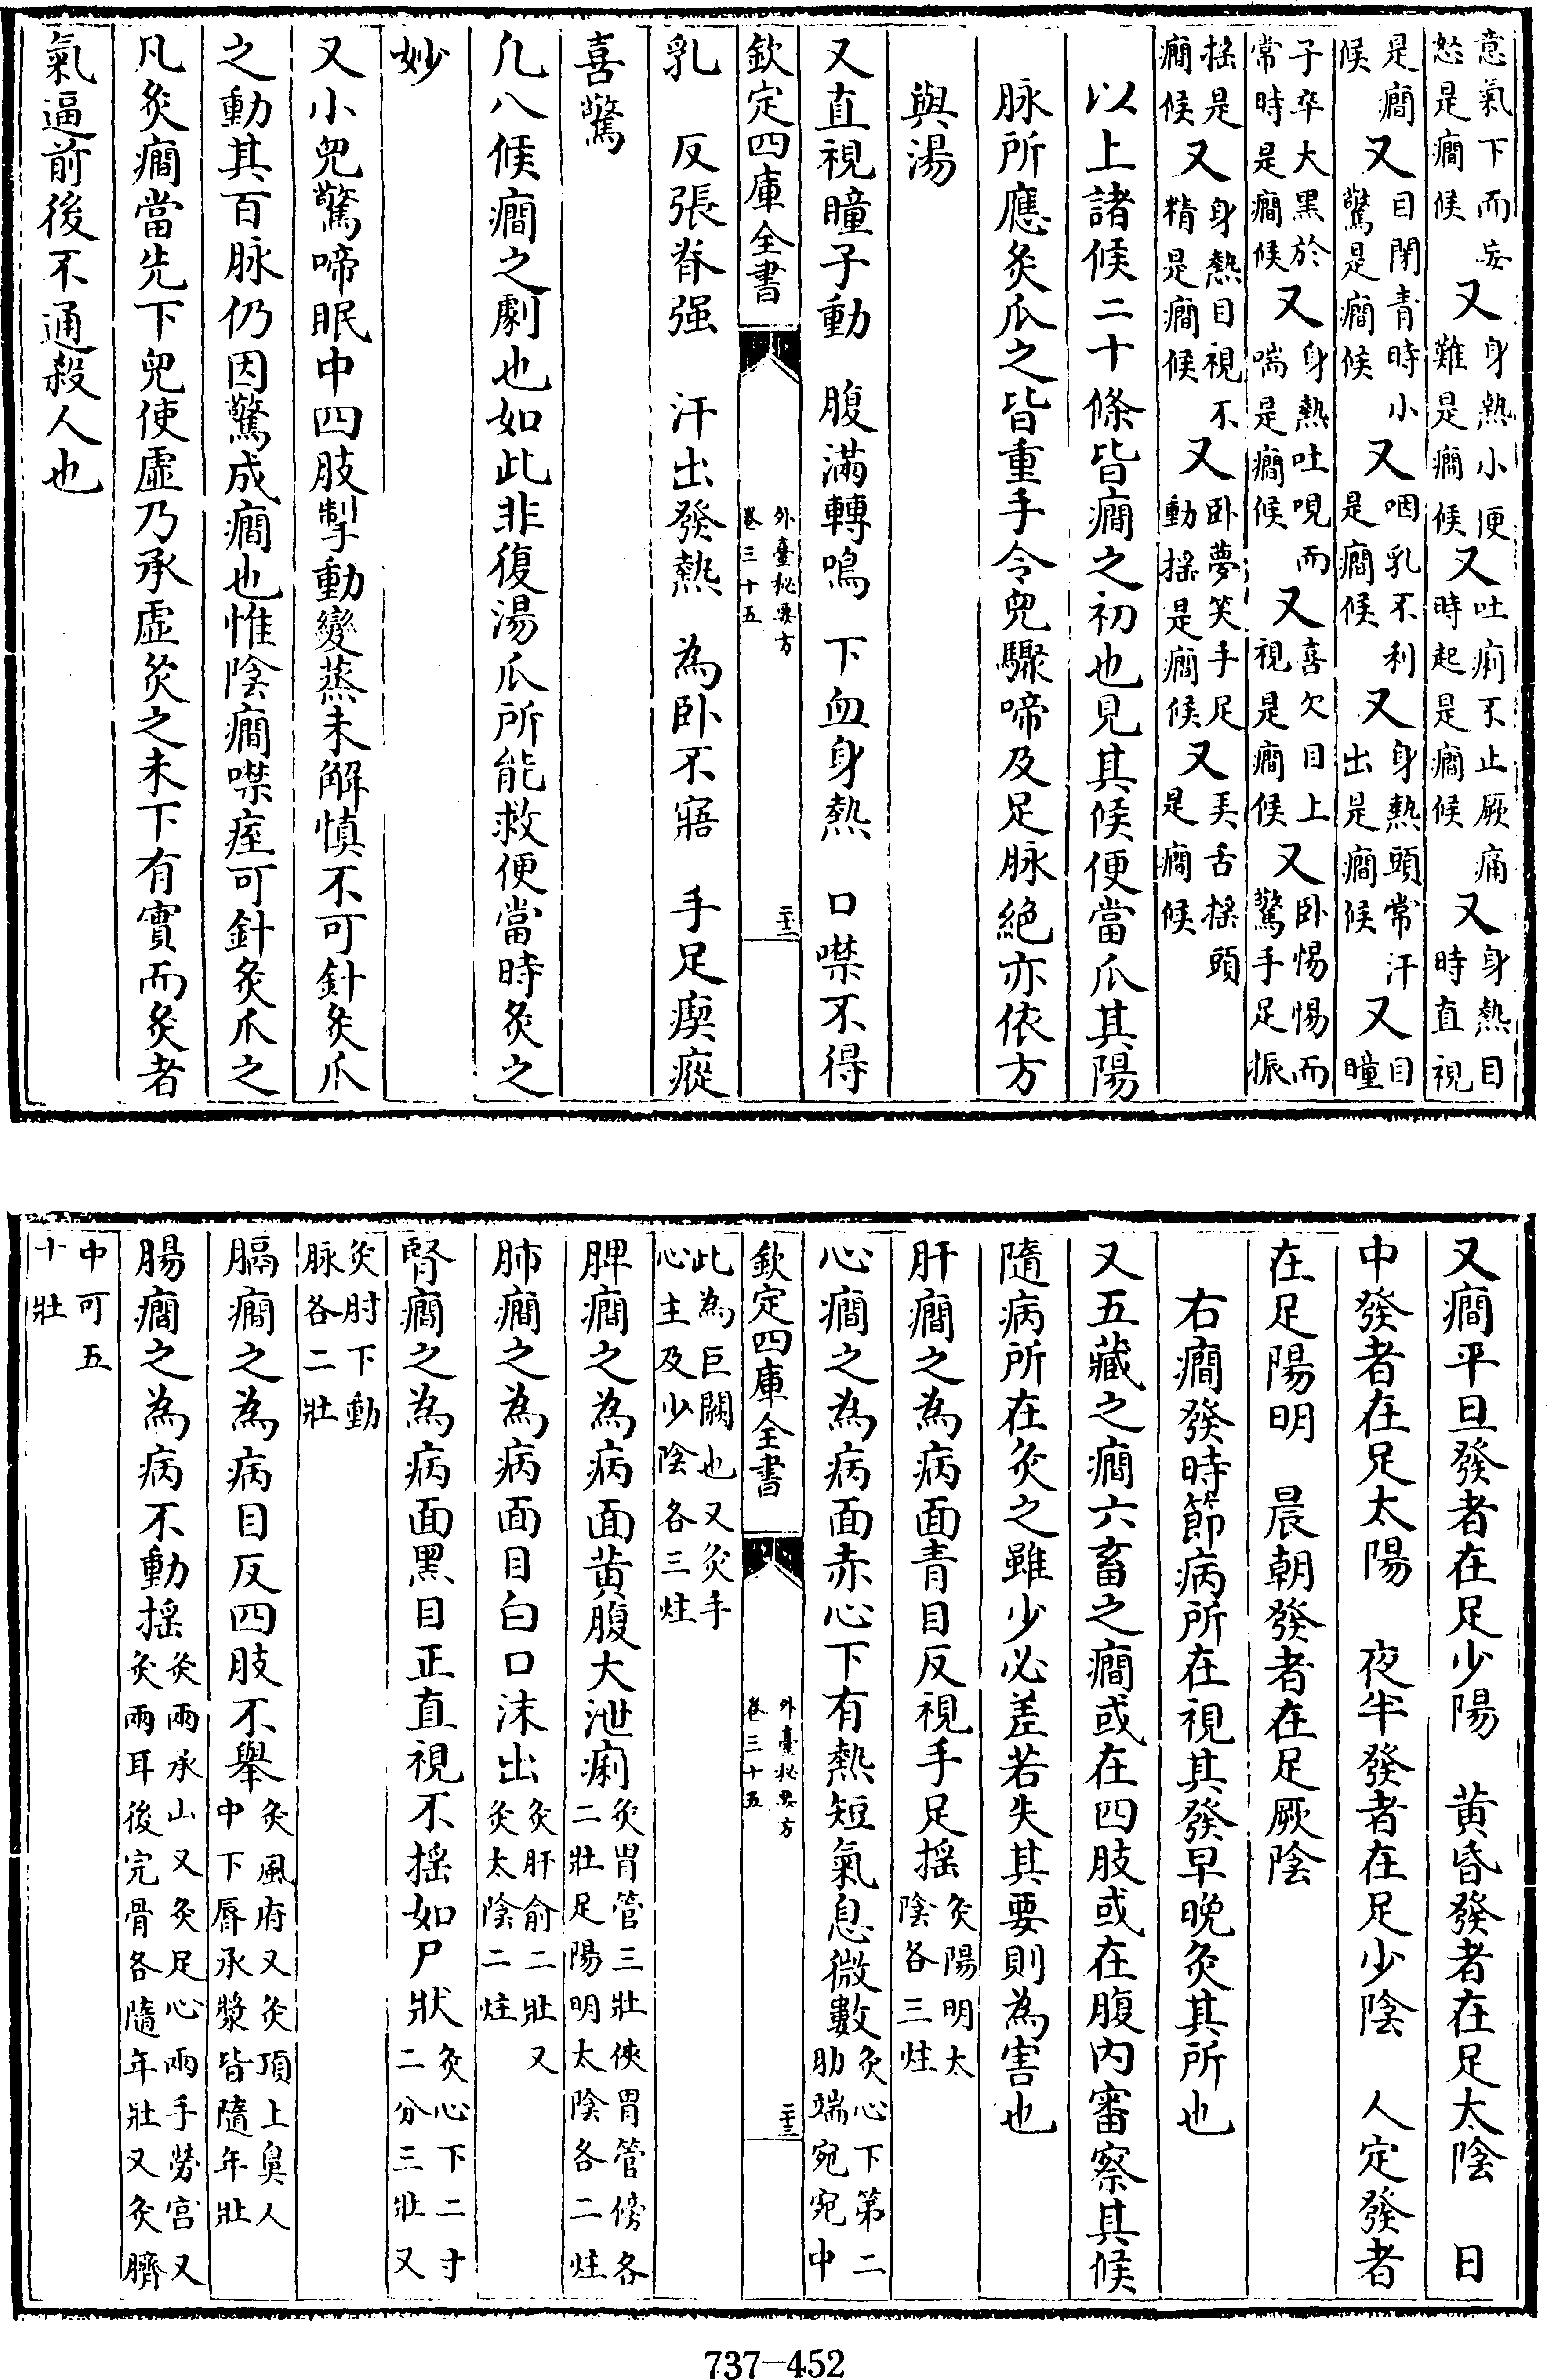 意氣下而妄
怒是癇候
又
身熱小便
難是癇候
又
吐痢不止厥痛
時起是癇候
又
身熱目
時直視
是癇
候
又
目閉青時小
驚是癇候
又
咽乳不利
是癇候
又
身熱頭常汗
出是癇候
又
目
瞳
子卒大黑於
常時是癇候
又
身熱吐哯而
喘是癇候
又
喜欠目上
視是癇候
又
卧惕惕而
驚手足振
揺是
癇候
又
身熱目視不
精是癇候
又
卧夢笑手足
動揺是癇候
又
弄舌揺頭
是癇候
以上諸候二十條皆癇之初也見其候便當爪其陽
脉所應灸爪之皆重手令兒驟啼及足脉絕亦依方
與湯
又直視瞳子動　腹滿轉鳴　下血身熱　口噤不得
欽定四庫全書
外臺秘要方
卷三十五
二十二
乳　反張脊强　汗出發熱　為卧不寤　手足瘈瘲
喜驚
凡八候癇之劇也如此非復湯爪所能救便當時灸之
妙
又小兒驚啼眠中四肢掣動變蒸未解慎不可針灸爪
之動其百脉仍因驚成癇也惟陰癇噤痓可針灸爪之
凡灸癇當先下兒使虛乃承虛灸之未下有實而灸者
氣逼前後不通殺人也
又癇平旦發者在足少陽　黄昏發者在足太陰　日
中發者在足太陽　夜半發者在足少陰　人定發者
在足陽明　晨朝發者在足厥陰
右癇發時節病所在視其發早晚灸其所也
又五藏之癇六畜之癇或在四肢或在腹内審察其候
隨病所在灸之雖少必差若失其要則為害也
肝癇之為病面青目反視手足揺
灸陽明太
陰各三炷
心癇之為病面赤心下有熱短氣息微數
灸心下第二
肋端宛宛中
欽定四庫全書
外臺秘要方
卷三十五
二十三
此為巨闕也又灸手
心主及少陰各三炷
脾癇之為病面黄腹大泄痢
灸胃管三壯俠胃管傍各
二壯足陽明太陰各二炷
肺癇之為病面目白口沫出
灸肝俞二壯又
灸太陰二炷
腎癇之為病面黑目正直視不揺如尸狀
灸心下二寸
二分三壯又
灸肘下動
脉各二壯
膈癇之為病目反四肢不舉
灸風府又灸頂上鼻人
中下脣承漿皆隨年壯
腸癇之為病不動揺
灸兩承山又灸足心兩手勞宫又
灸兩耳後完骨各隨年壯又灸臍
中可五
十壯
737—452